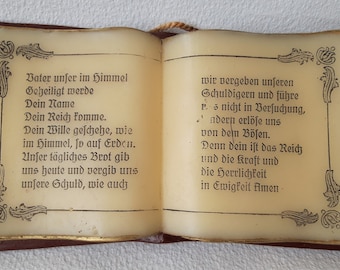 Vater unser im Himmel
Geheiligt werde
Dein Name
Dein Reich komme.
Dein Wille geschehe, wie
im Himmel, so auf Erden.
Unser tägliches Brot gib
uns heute und vergib uns
unsere Schuld, wie auch
wir vergeben unseren
Schuldigern und führe
s nicht in Versuchung,
ndern erlöse uns
von dem Bösen.
Denn dein ist das Reich
und die Kraft und
die Herrlichkeit
in Ewigkeit Amen